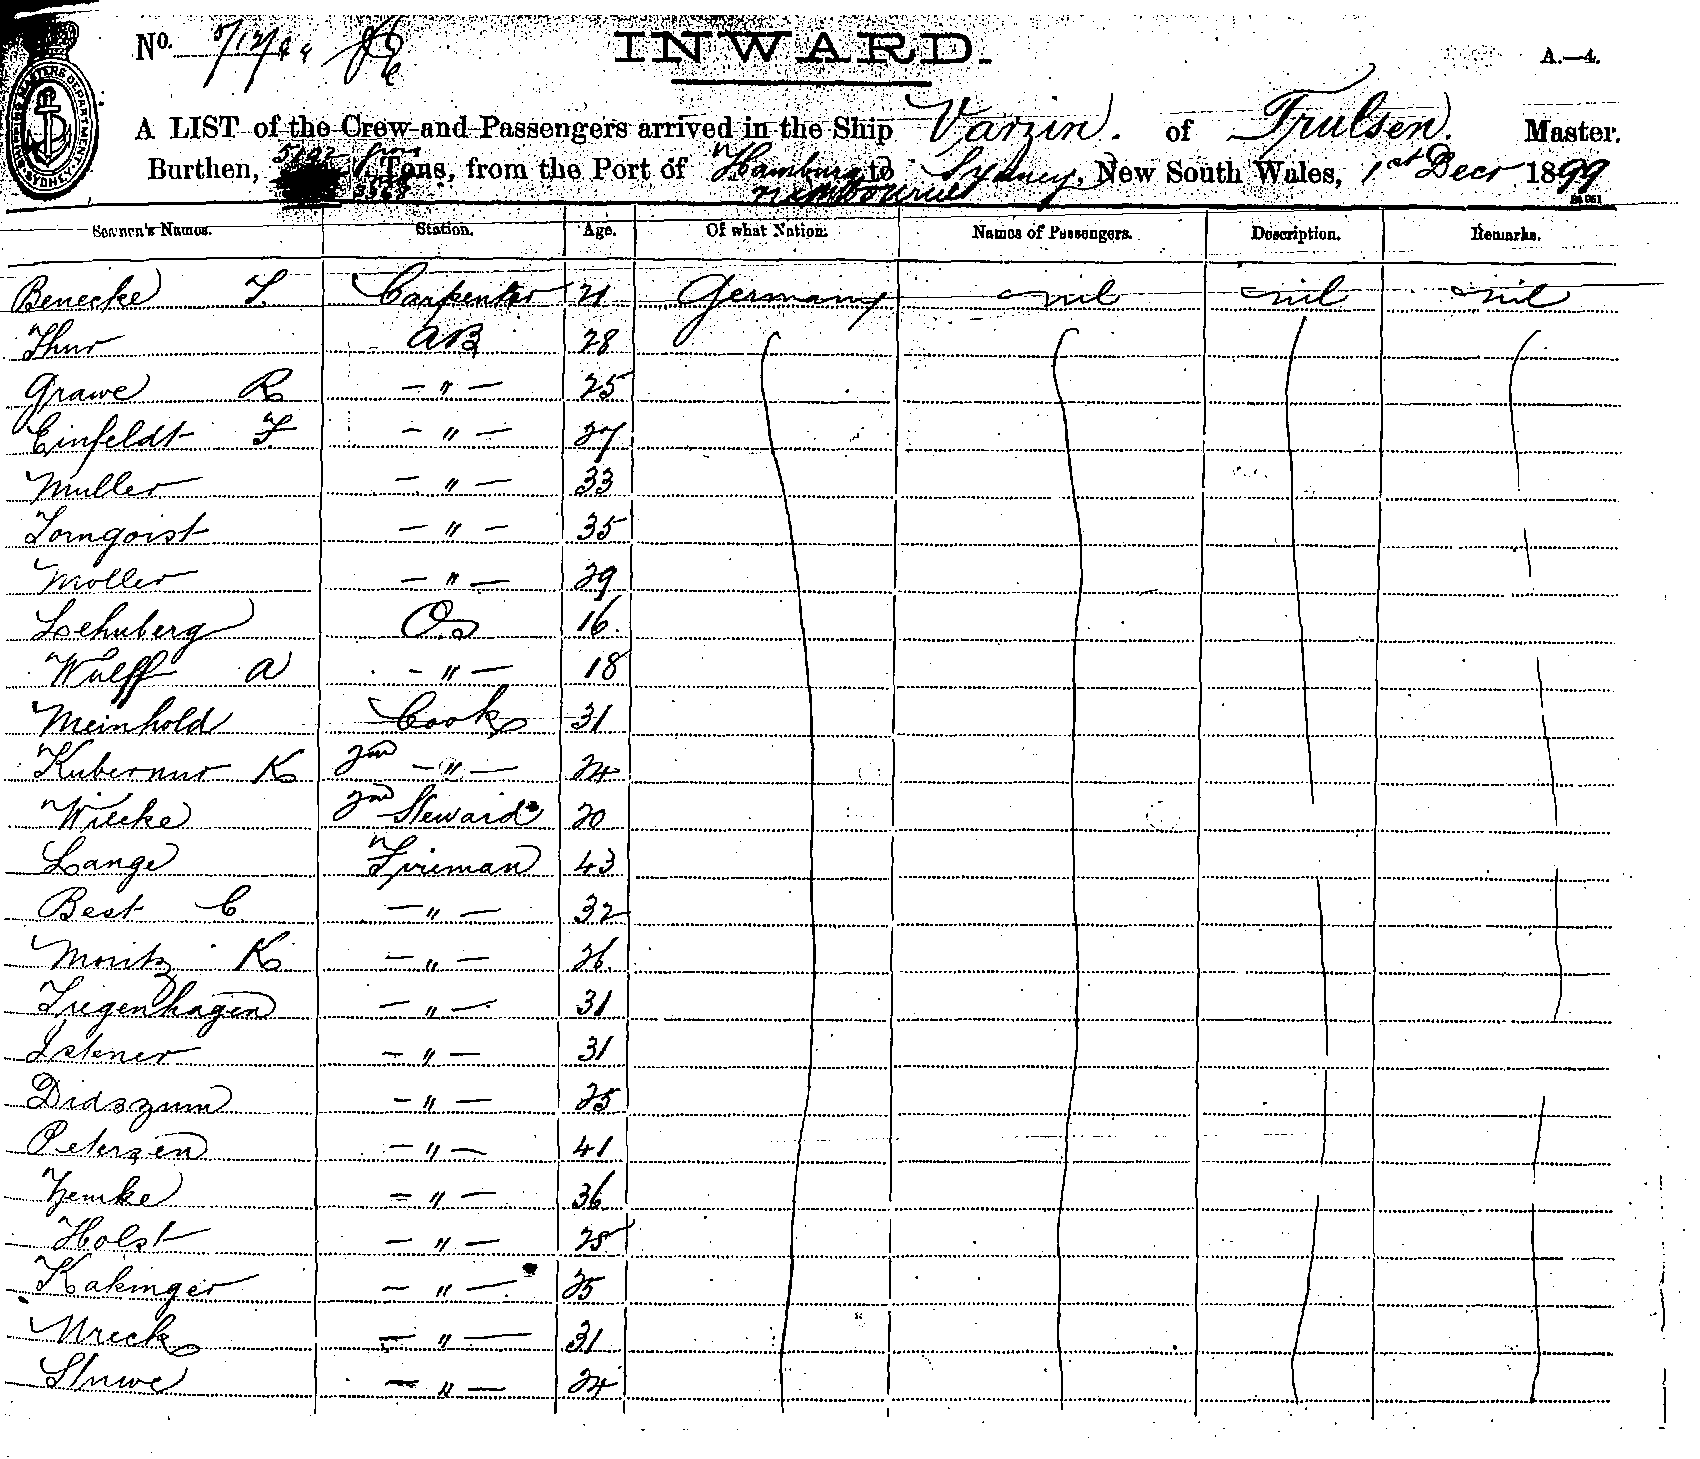 No. 5/12/99
INWARD.
A.—4.
A LIST of the Crew and Passengers arrived in the Ship Varzin. of Trulsen. Master.
Burthen, Tons, from the Port of Hamburg to Sydney, New South Wales, 1st Decr 1899
Melbourne
Seamen's Names. Station. Age. Of what Nation. Names of Passengers. Description. Remarks.
Benecke F. Carpenter 21 Germany nil nil nil
Thur AB 28
Grawe R — " — 25
Einfeldt F — " — 27
Muller — " — 33
Tornqvist — " — 35
Moller — " — 29
Lehnberg Os 16
Wulff A — " — 18
Meinhold Cook 31
K 2nd — " — 24
Wilcke 2nd Steward 20
Lange Fireman 43
Best C. — " — 32
Moritz K — " — 26
— " — 31
— " — 31
Didszum — " — 25
Petersen — " — 41
Zemke — " — 36
Holst — " — 25
Kakinger — " — 25
— " — 31
Stuwe — " — 24